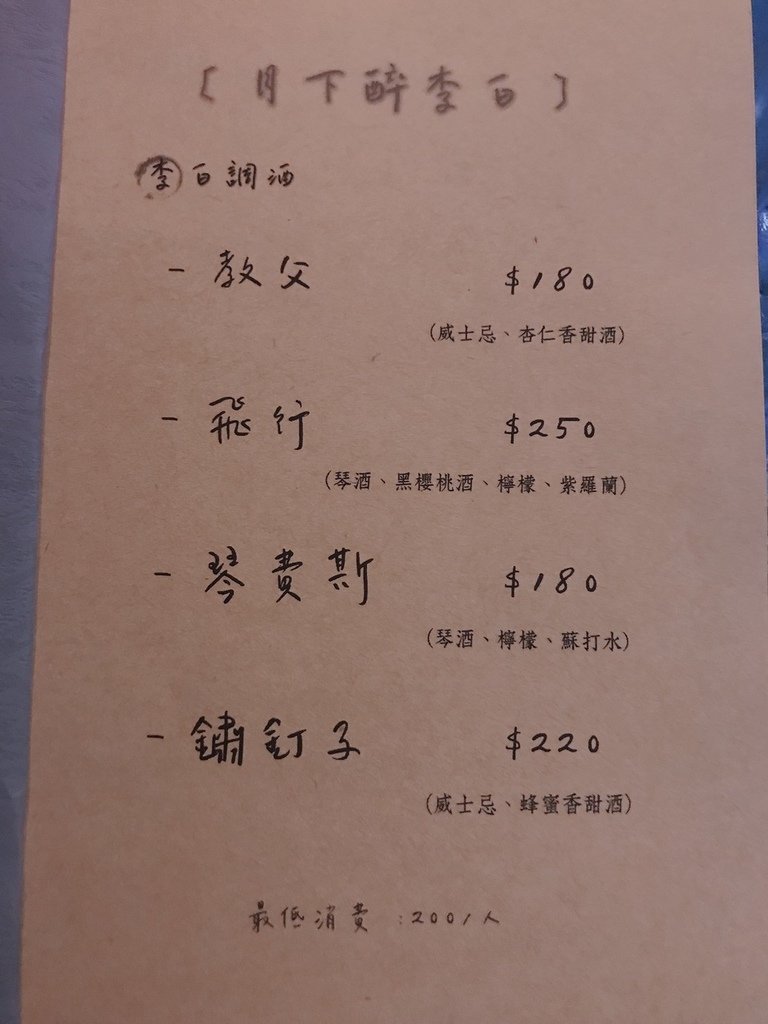 [月下醉李白]
李白調酒
- 教父 $180
(威士忌、杏仁香甜酒)
- 飛行 $250
(琴酒、黑櫻桃酒、檸檬、紫羅蘭)
- 琴費斯 $180
(琴酒、檸檬、蘇打水)
- 鏽釘子 $220
(威士忌、蜂蜜香甜酒)
最低消費:200/人